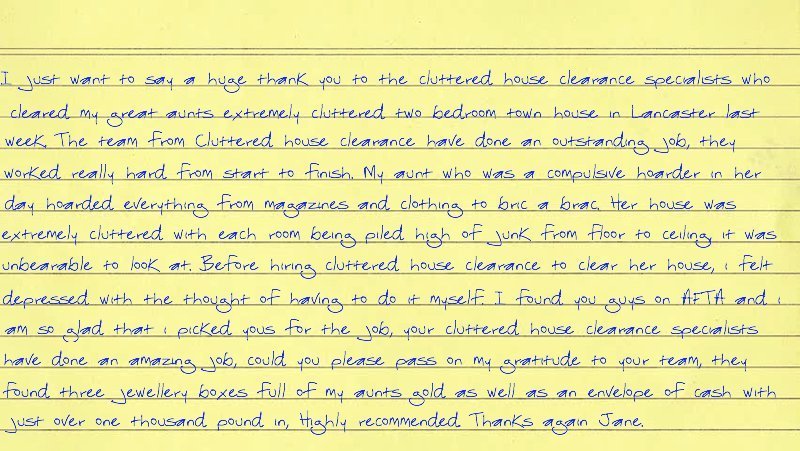 I just want to say a huge thank you to the cluttered house clearance specialists who
cleared my great aunts extremely cluttered two bedroom town house in Lancaster last
week. The team from Cluttered house clearance have done an outstanding job, they
worked really hard from start to finish. My aunt who was a compulsive hoarder in her
day hoarded everything from magazines and clothing to bric a brac. Her house was
extremely cluttered with each room being piled high of junk from floor to ceiling it was
unbearable to look at. Before hiring cluttered house clearance to clear her house, i felt
depressed with the thought of having to do it myself. I found you guys on AFTA and i
am so glad that i picked yous for the job, your cluttered house clearance specialists
have done an amazing job, could you please pass on my gratitude to your team, they
found three jewellery boxes full of my aunts gold as well as an envelope of cash with
just over one thousand pound in, Highly recommended. Thanks again Jane.